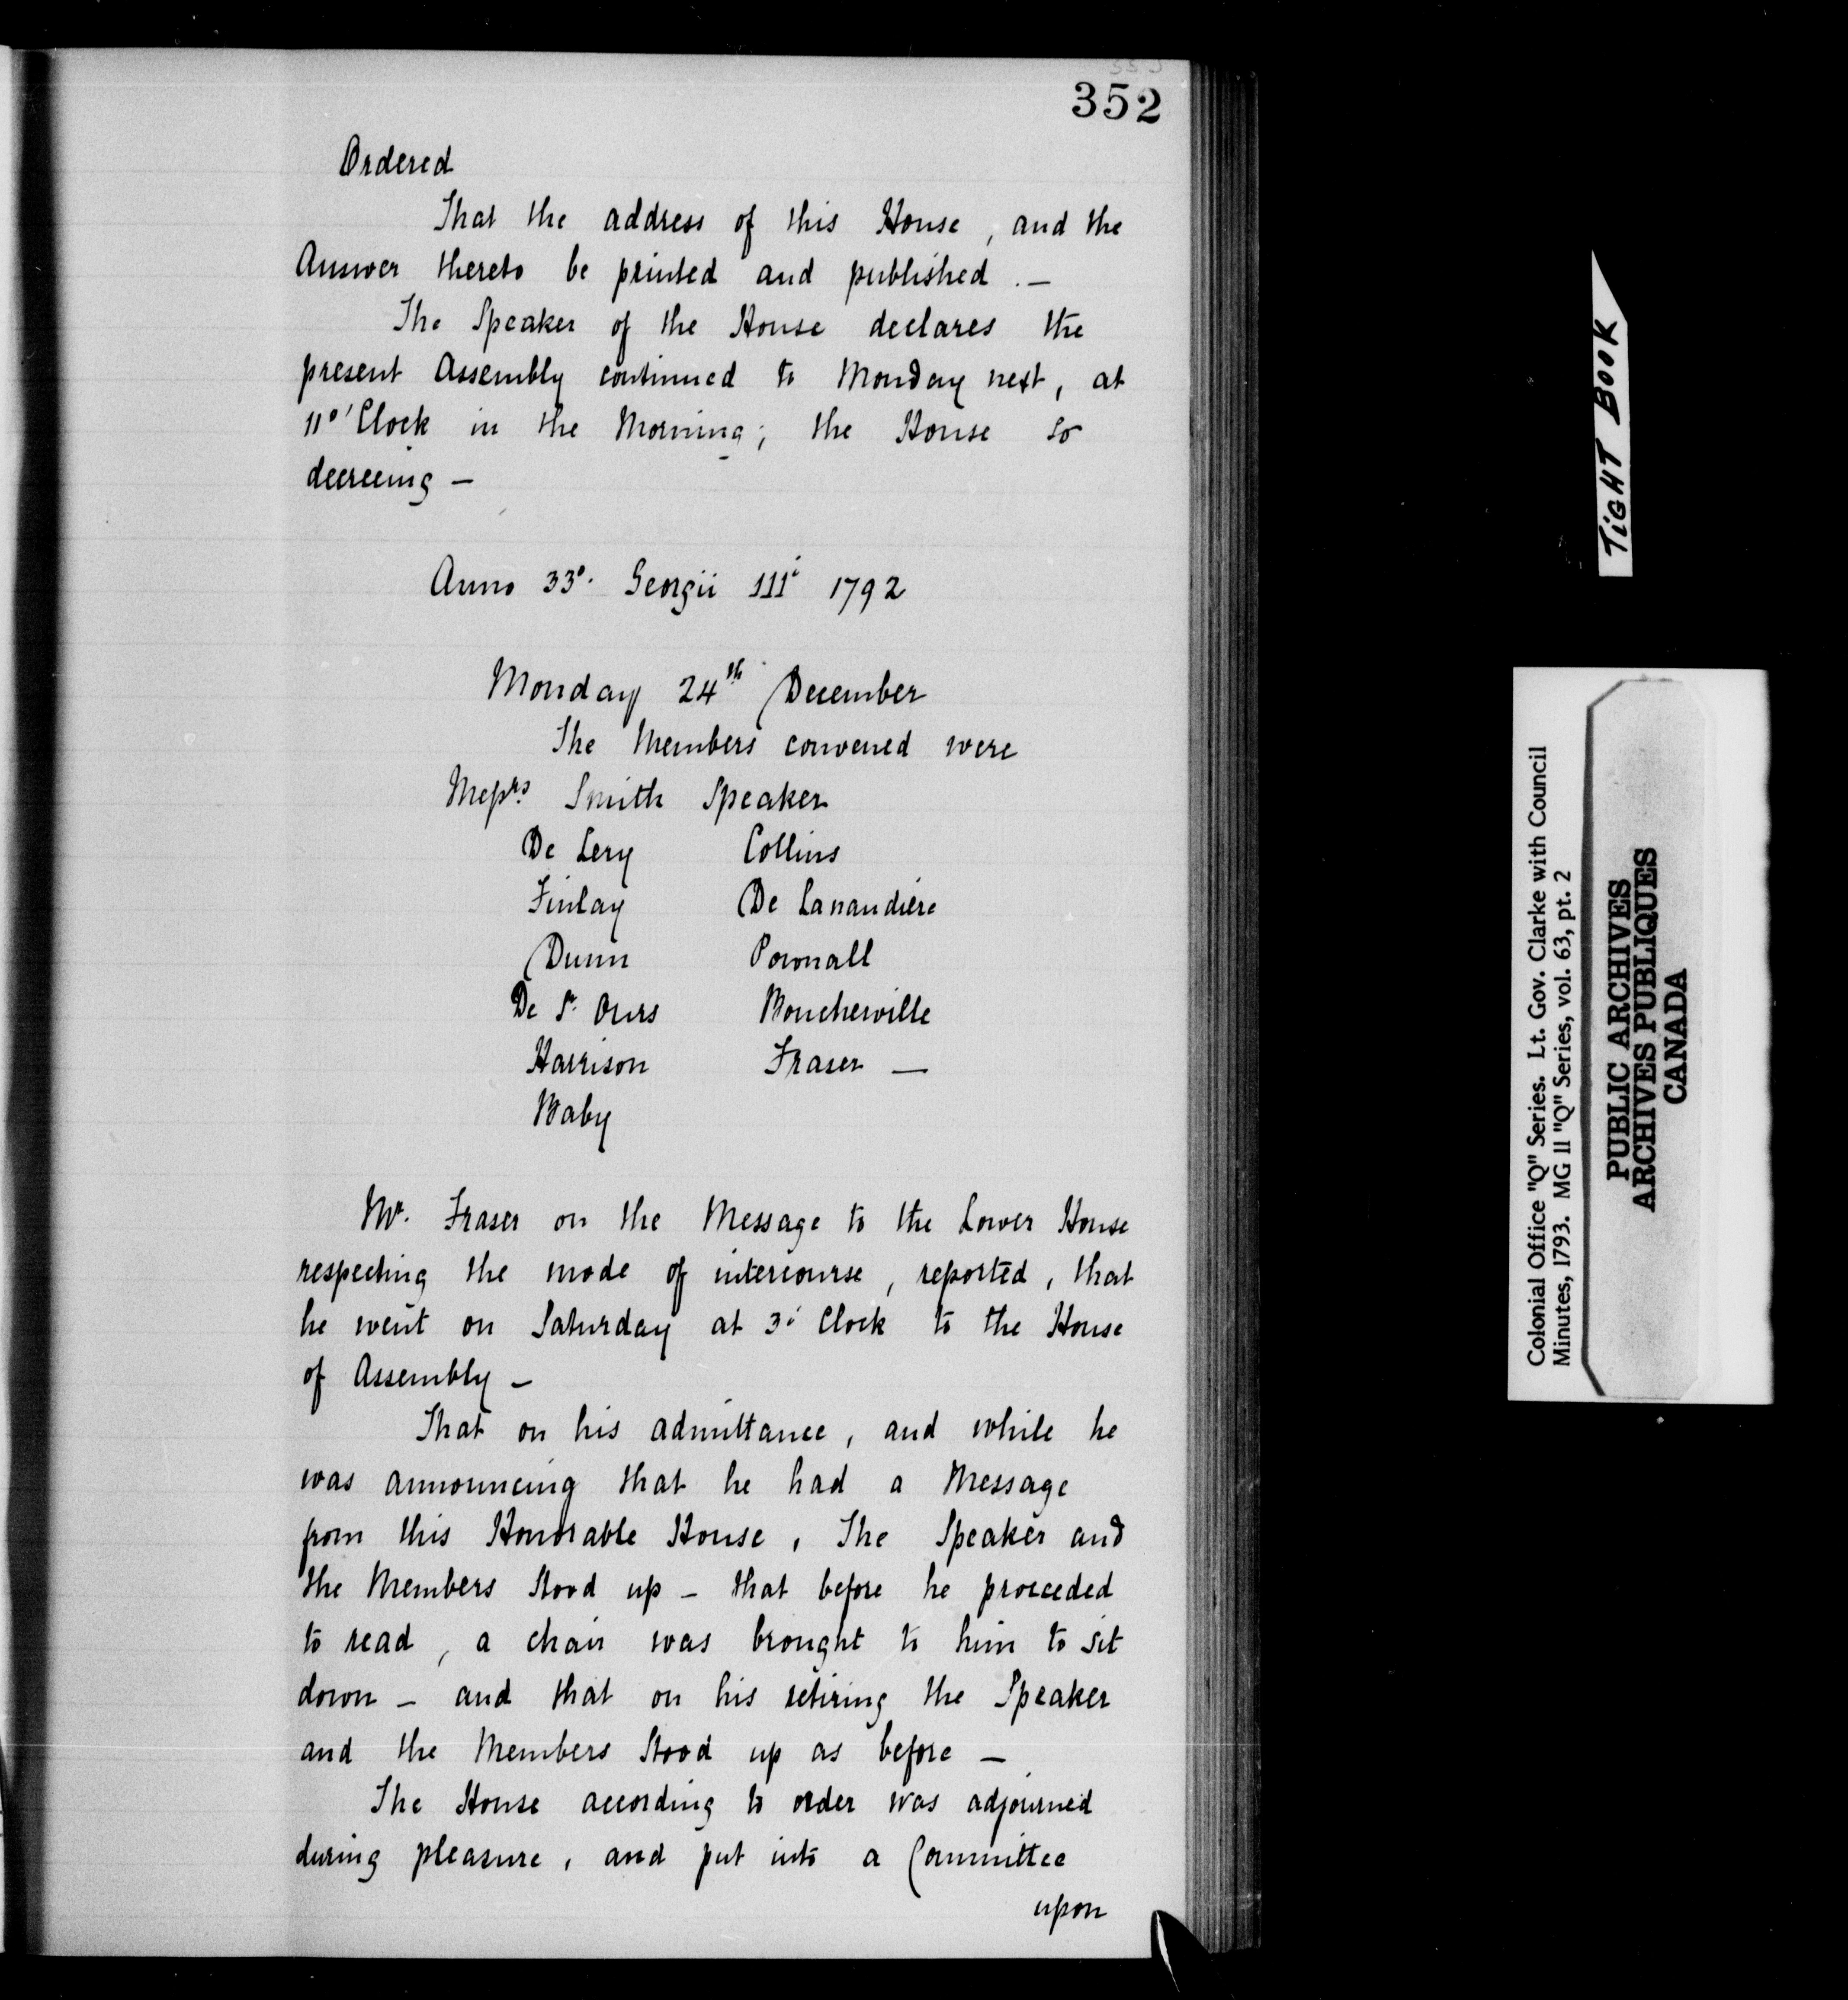 352
Ordered
That the address of this House, and the
Answer thereto be printed and published. —
The Speaker of the House declares the
present Assembly continued to Monday next, at
11 o'Clock in the Morning; the House so
decreeing —
Anno 33°. Georgii III^i 1792
Monday 24th December
The Members convened were
Messrs. Smith Speaker
De Lery Collins
Finlay De Lanaudiere
Dunn Pownall
De St. Ours Boucherville
Harrison Fraser —
Baby
Mr. Fraser on the Message to the Lower House
respecting the mode of intercourse, reported, that
he went on Saturday at 3 o' Clock to the House
of Assembly —
That on his admittance, and while he
was announcing that he had a Message
from this Honorable House, The Speaker and
the Members stood up — that before he proceeded
to read, a chair was brought to him to sit
down — and that on his retiring the Speaker
and the Members stood up as before —
The House according to order was adjourned
during pleasure, and put into a Committee
upon
TIGHT BOOK
Colonial Office "Q" Series. Lt. Gov. Clarke with Council
Minutes, 1793. MG 11 "Q" Series, vol. 63, pt. 2
PUBLIC ARCHIVES
ARCHIVES PUBLIQUES
CANADA